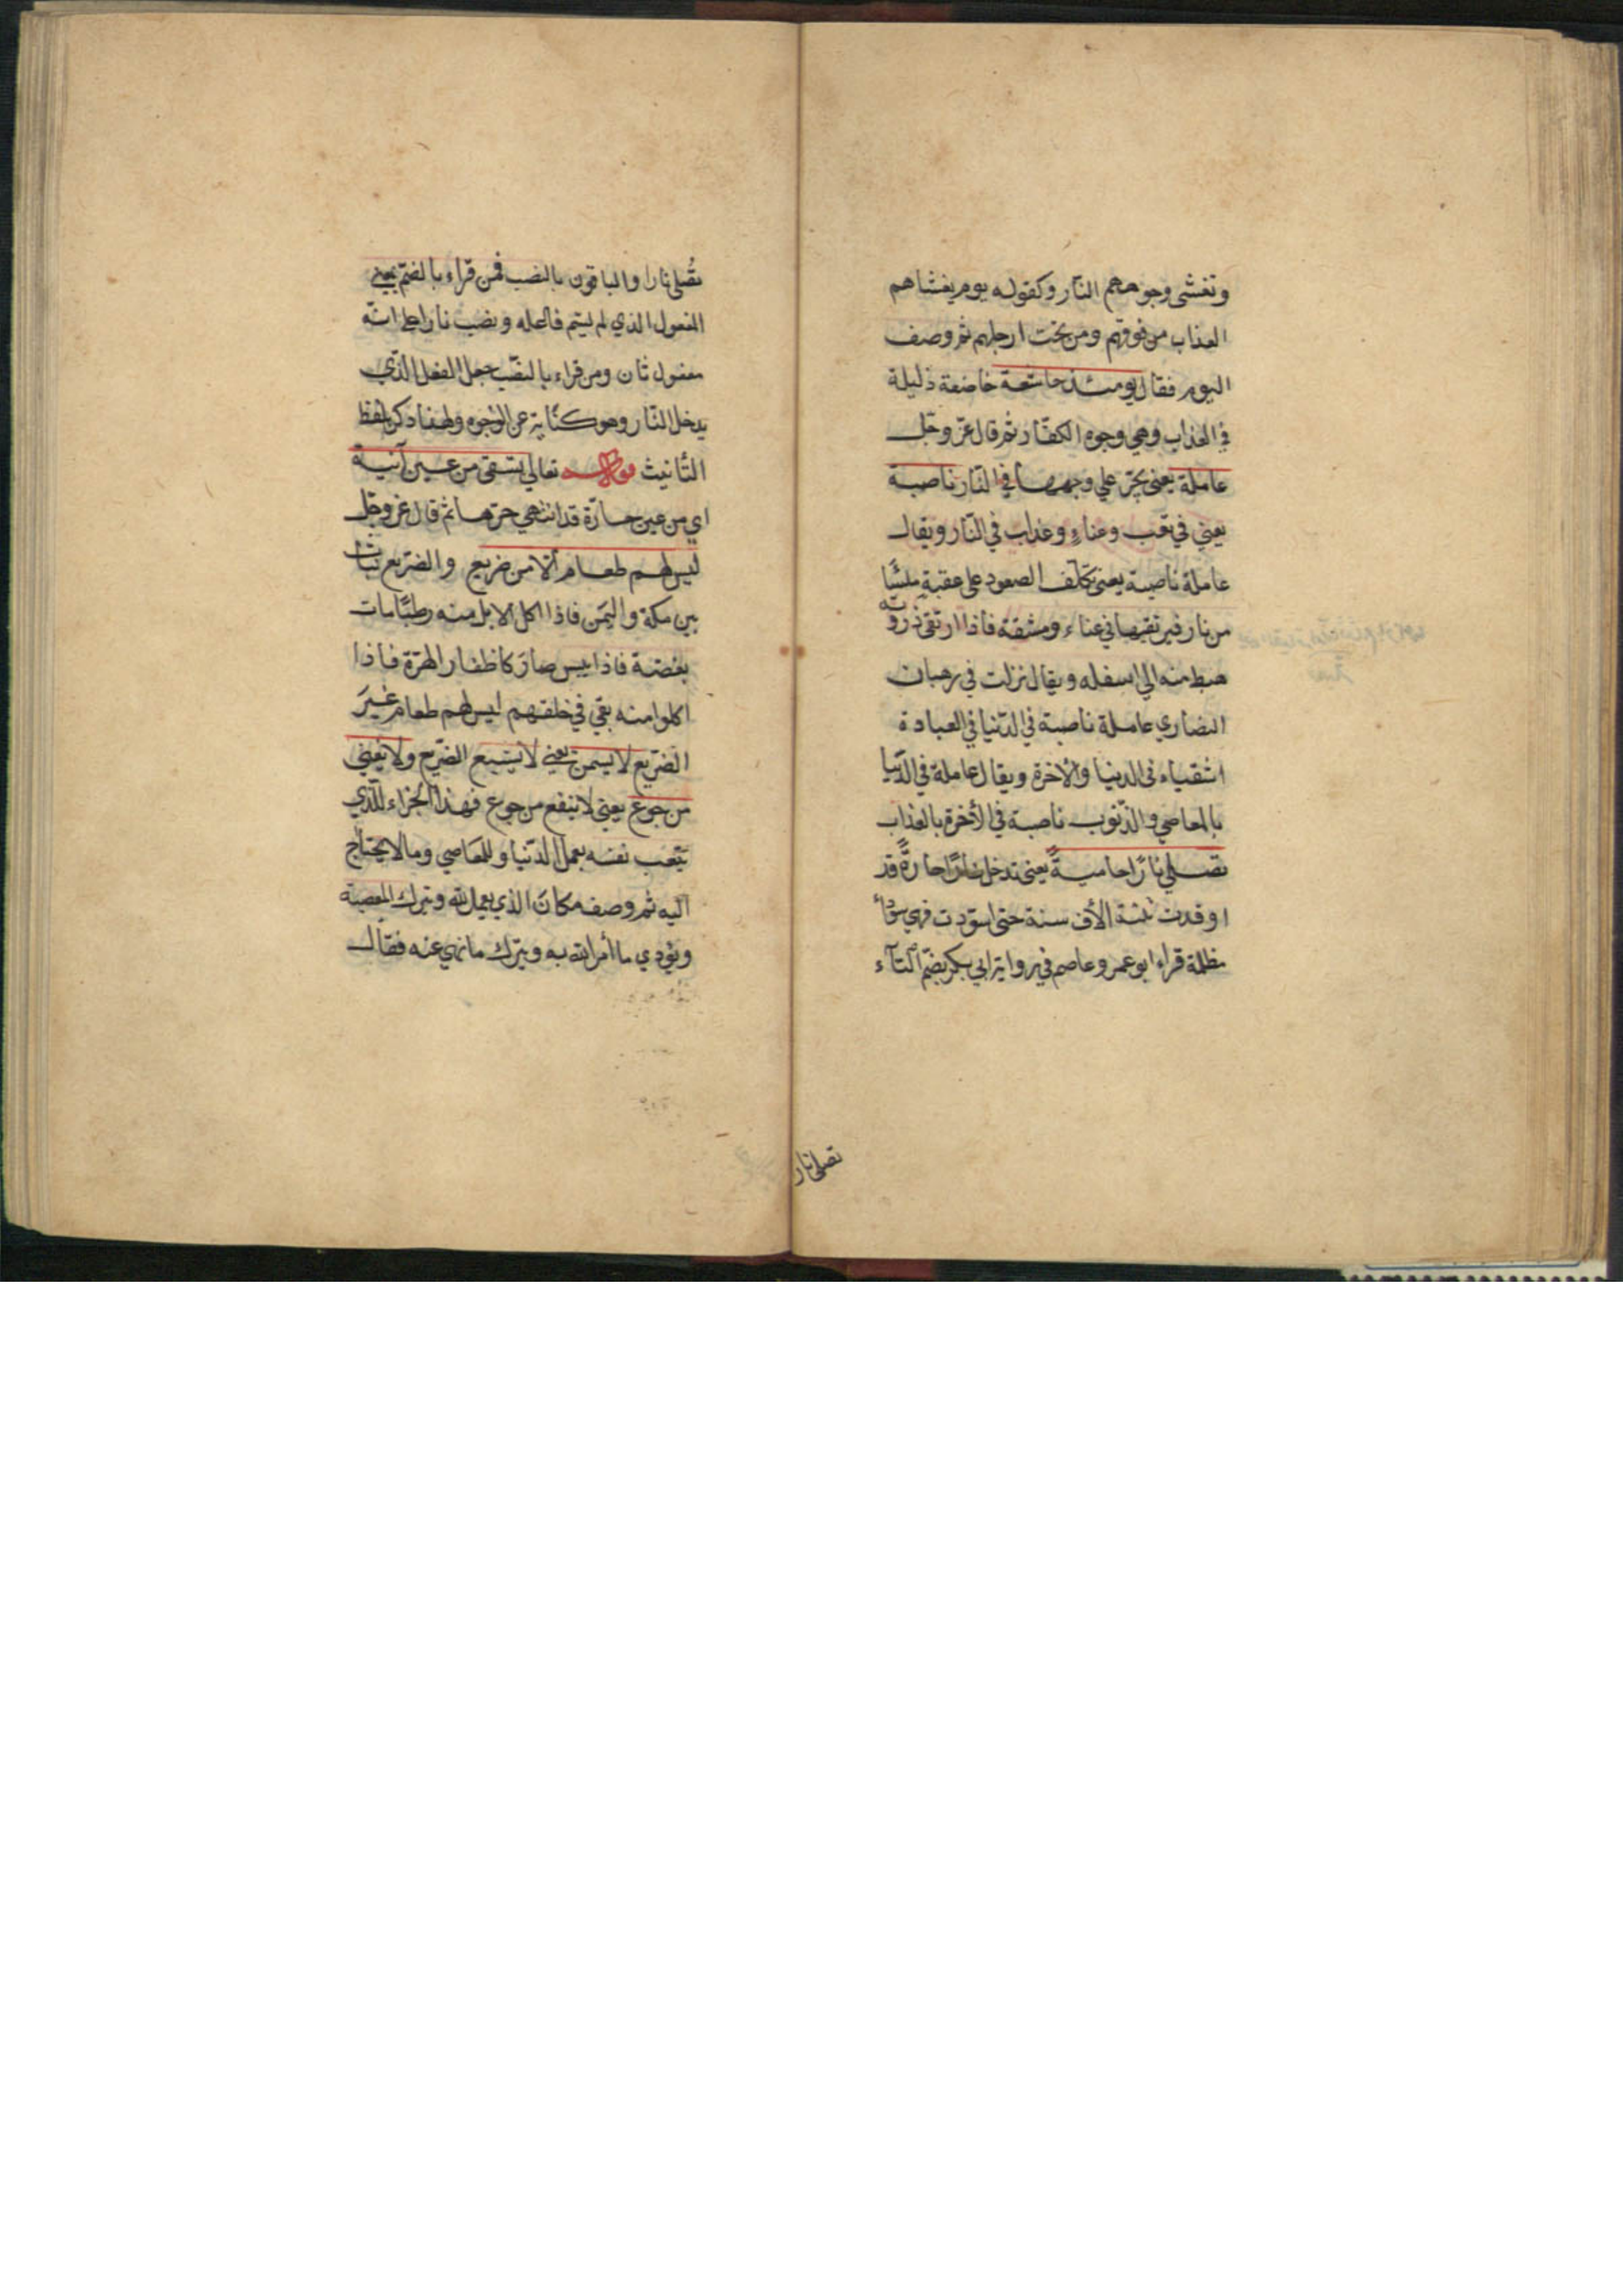 وتغشى وجوههم النار وكقوله يوم يغشاهم
العذاب من فوقهم ومن تحت ارجلهم ثم وصف
اليوم فقال يومئذ خاشعة خاضعة ذليلة
في العذاب وهي وجوه الكفّار ثم قال عزّ وجلّ
عاملة يعني تجرّ علي وجهها في النّار ناصبة
يعني في تعب وعناءٍ وعذاب في النّار ويقال
عاملة ناصبة يعني تكلّف الصعود على عقبة ملسًا
من نار فيرتقيها في عناء ومشقة فاذا ارتقى ذروته
هبط منه الي اسفله ويقال نزلت في رهبان
النصاري عاملة ناصبة في الدّنيا في العبادة
اشقياء في الدنيا والآخرة ويقال عاملة في الدّنيا
بالمعاصي والذّنوب ناصبة في الأخرة بالعذاب
تصلي نارًا حاميةً يعني تدخل نارًا حارةً قد
اوقدت ثلثة الأف سنة حتى اسودت فهي سوداء
مظلمة قراء ابو عمرو وعاصم في رواية ابي بكر بضمّ التّآء
تصلى نار
تُصلى نارا والباقون بالنصب فمن قراء بالضمّ يعني
المفعول الذي لم يسّم فاعله ونصب نارا على انّه
مفعول ثان ومن قراء بالنصّب جعل الفعل الذّي
يدخل النّار وهو كنّاية عن الوجوه ولهذا ذكر بلفظ
التّأنيث قوله تعالي تسقى من عين آنية
اي من عين حارّة قد انتهي حرّها ثم قال عزّ وجلّ
ليس لهم طعام الّا من ضريع والضّريع نبات
بين مكة واليمَن فاذا اكل الابل منه رطبًا مات
بغصّة فاذا يبس صارَ كاظفار الهرّة فاذا
اكلوا منه بقي في خلقهم ليس لهم طعام غيرَ
الضّريع لا يسمن يعني لا يشبع الضّريع ولا يغني
من جوع يعني لا ينفع من جوع فهذا الجزاء للّذي
يتّعب نفسه بعمل الدّنيا وللمعَاصي وما لا يحتاج
اليه ثم وصف مكانَ الذي يعمل لله ويترك المعصية
ويؤدي ما أمر الله به ويترك ما نهي عنه فقال